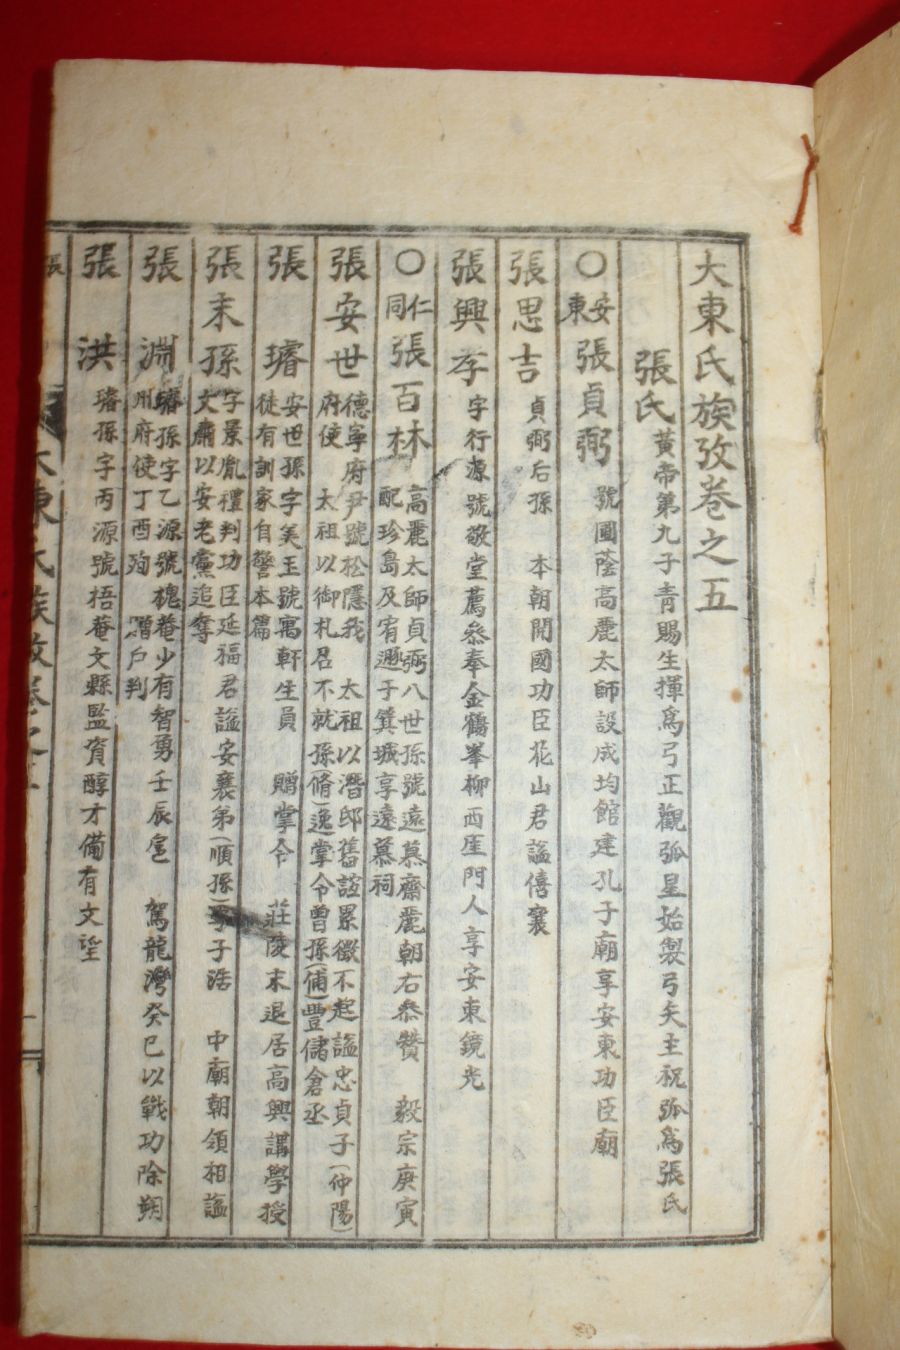 大東氏族攷卷之五
張氏 黃帝第九子青賜生揮爲弓正觀弧星始製弓矢主祀弧爲張氏
○安東 張貞弼 號圓蔭高麗太師設成均館建孔子廟享安東功臣廟
張思吉 貞弼后孫 本朝開國功臣花山君諡僖襄
張興孝 字行源號敬堂薦叅奉金鶴峯柳西厓門人享安東鏡光
○仁同 張百林 高麗太師貞弼八世孫號遠慕齋麗朝右叅贊 毅宗庚寅
配珍島及宥遯于箕城享遠慕祠
張安世 德寧府尹號松隱我 太祖以潛邸舊誼累徵不起諡忠貞子(仲陽)
府使 太祖以御札召不就孫(脩)(逸)掌令曾孫(俌)豐儲倉丞
張 璿 安世孫字美玉號寓軒生員 贈掌令 莊陵末退居高興講學授
徒有訓家自警本篇
張末孫 字景胤禮判功臣延福君諡安襄弟(順孫) 子浩 中廟朝領相諡
文肅以安老黨追奪
張 淵 璿孫字乙源號槐菴少有智勇壬辰扈 駕龍灣癸巳以戰功除朔
州府使丁酉殉 贈戶判
張 洪 璿孫字丙源號梧菴文縣監資醇才備有文望
張
大東氏族攷卷之五
一